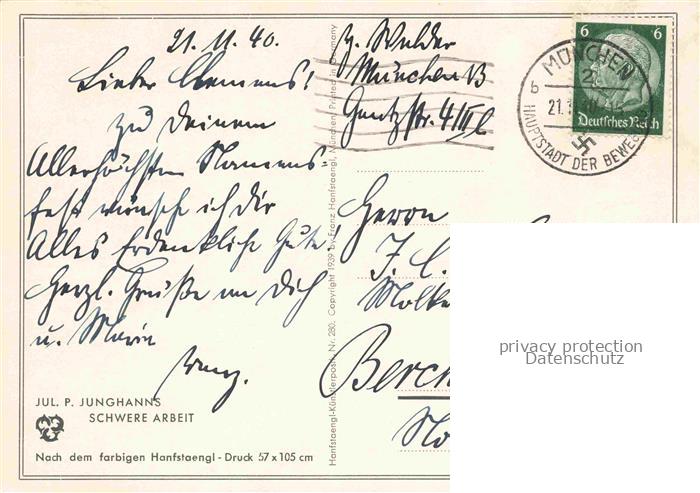 21. 11. 40.
Lieber Clemens!
Zu Deinem
Allerhöchsten Namens-
fest wünsche ich Dir
Alles Erdenkliche Gute!
Herzl. Grüße an Dich
u. Maria
Franz.
JUL. P. JUNGHANNS
SCHWERE ARBEIT
Nach dem farbigen Hanfstaengl - Druck 57 x 105 cm
Hanfstaengl-Künstlerpostk. Nr. 280. Copyright 1939 by Franz Hanfstaengl, München. Printed in Germany
München 13
Gentzstr. 4/III
6 6
Deutsches Reich
MÜNCHEN
2
b
21.11.40
HAUPTSTADT DER BEWEG
Herrn
J. C.
privacy protection
Datenschutz